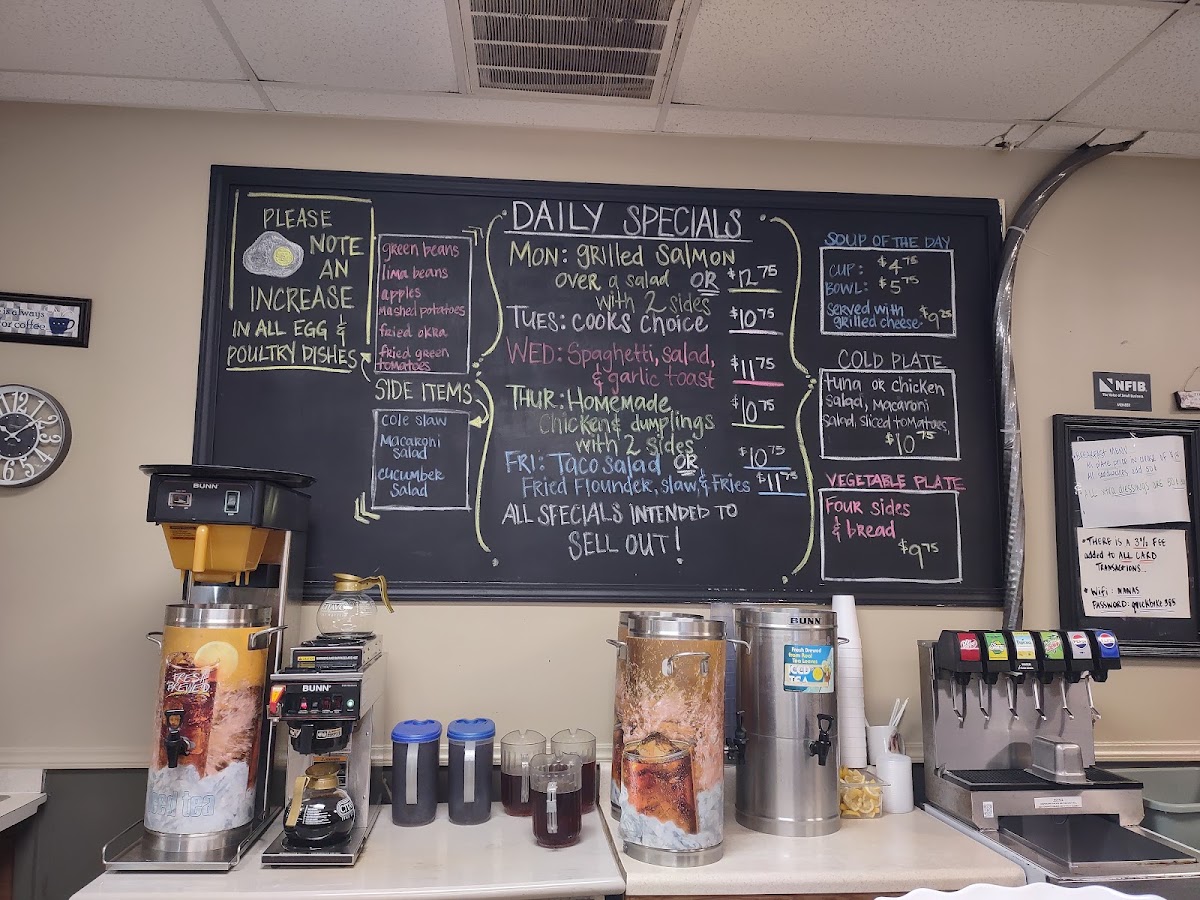 PLEASE
NOTE
AN
INCREASE
IN ALL EGG &
POULTRY DISHES
green beans
lima beans
apples
mashed potatoes
fried okra
fried green
tomatoes
SIDE ITEMS
cole slaw
macaroni
salad
cucumber
salad
DAILY SPECIALS
MON: grilled salmon
over a salad OR $12.75
with 2 sides
TUES: cooks choice $10.75
WED: Spaghetti, salad, $11.75
& garlic toast
THUR: Homemade $10.75
Chicken & dumplings
with 2 sides
FRI: Taco salad OR $10.75
Fried Flounder, slaw, & fries $11.75
ALL SPECIALS INTENDED TO
SELL OUT!
SOUP OF THE DAY
CUP: $4.75
BOWL: $5.75
served with
grilled cheese $9.25
COLD PLATE
tuna or chicken
salad, macaroni
salad, sliced tomatoes,
$10.75
VEGETABLE PLATE
Four sides
& bread
$9.75
is always
for coffee
12
11
1
10
2
9
3
4
7
6
5
NFIB
• THERE IS A 3% FEE
added to ALL CARD
TRANSACTIONS..
• Wifi: NANAS
PASSWORD:
BUNN
FRESH
BREWED
iced tea
BUNN
BUNN
Fresh Brewed
from Real
Tea Leaves
ICED
TEA
pepsi